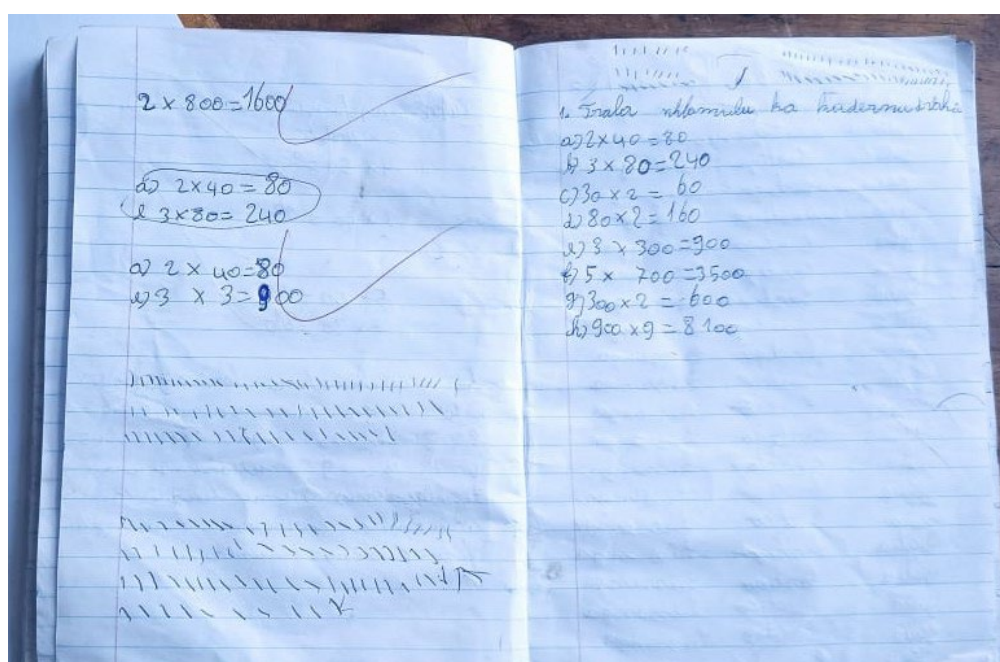 2 × 800 = 1600
d) 2 × 40 = 80
e 3 × 80 = 240
a) 2 × 40 = 80
e) 3 × 3 = 900
1. Tsala nhlamulu ka
a) 2 × 40 = 80
b) 3 × 80 = 240
c) 30 × 2 = 60
d) 80 × 2 = 160
e) 3 × 300 = 900
f) 5 × 700 = 3500
g) 300 × 2 = 600
h) 900 × 9 = 8100